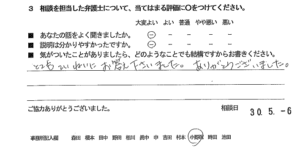 3 相談を担当した弁護士について、当てはまる評価に○をつけてください。
大変よい よい 普通 やや悪い 悪い
■ あなたの話をよく聞きましたか。 ○ - - - -
■ 説明は分かりやすかったですか。 ○ - - - -
■ 気がついたことがありましたら、どのようなことでも結構ですからお書きください。
とてもていねいにお答え下さいました。ありがとうございました。
ご協力ありがとうございました。
相談日 30.5.-6
事務担当記入欄 森田 橋本 田中 野田 相川 田中 中 吉田 村本 小野寺 時田 池田